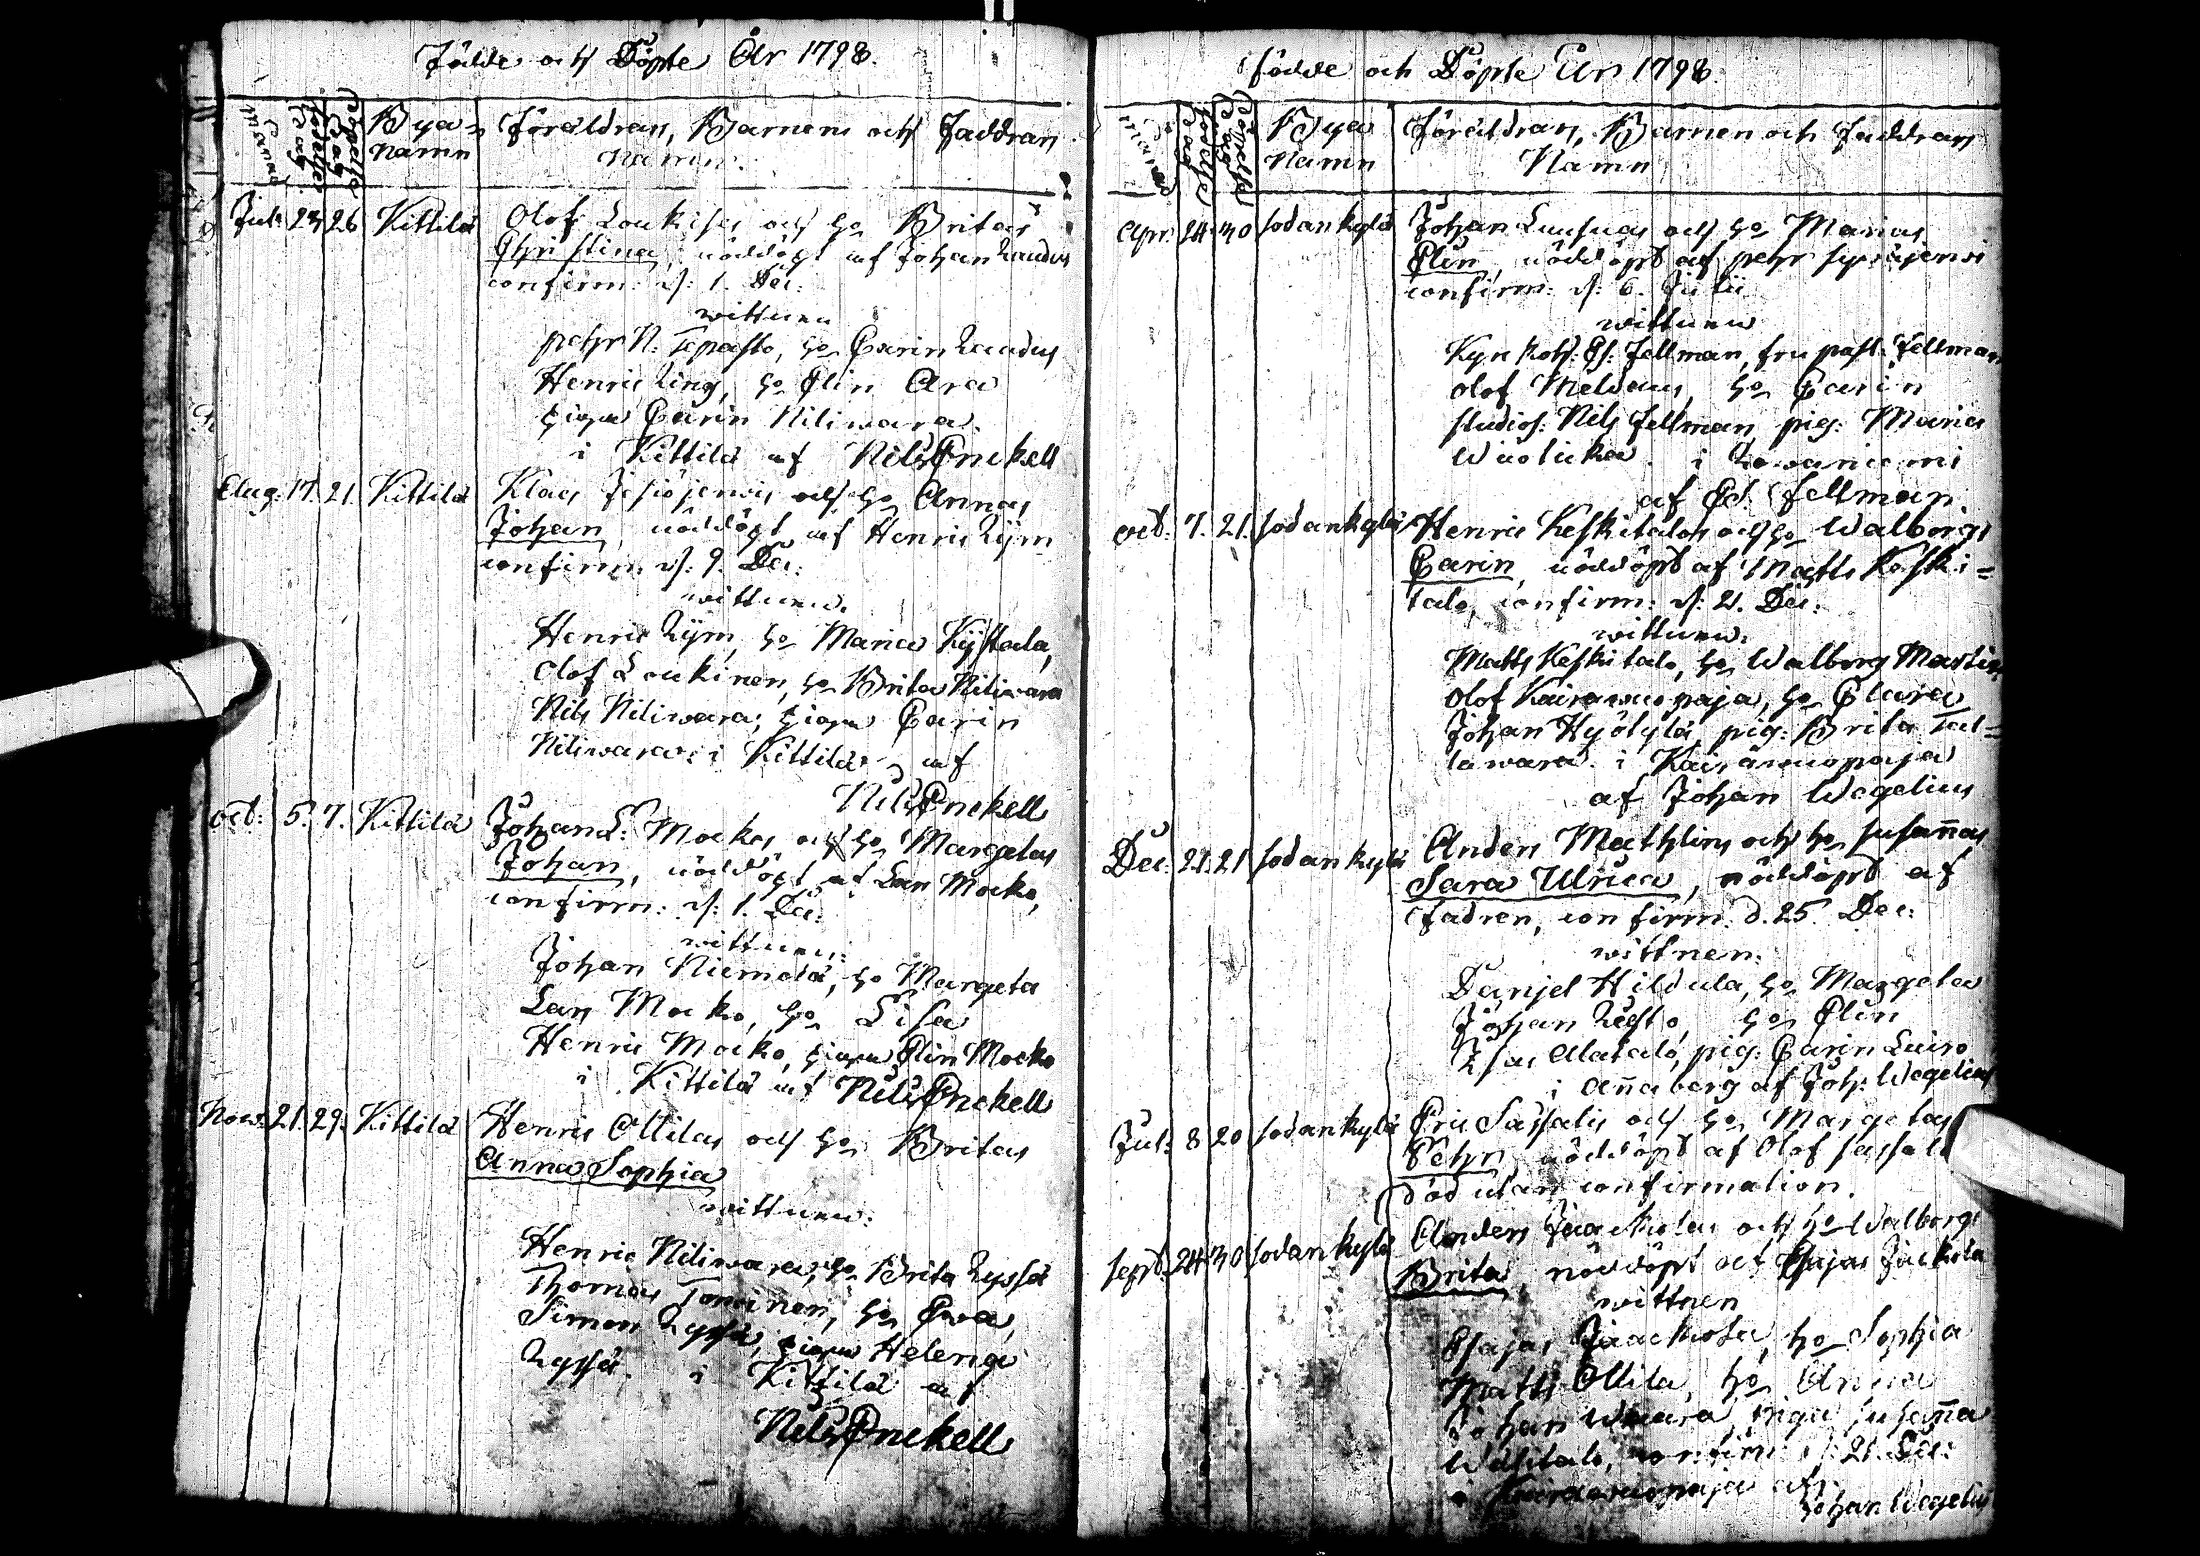 Födde och Döpte År 1798.
Månad
Födelse Dag
Döpelse Dag
Bya namn
Föräldran, Barnens och Faddran namn.
Jul: 23 26 Kittilä Olof Loukises och ho Britas
Christina, nöddöpt af Johan
confirm: d: 1. Dec:
wittnen
Pehr N: Tepasto, ho Carin
Henric Ring, ho Elin Ara
piga Carin Niliwara.
i Kittilä af Nils Enckell
Aug. 17. 21. Kittilä Klas Jesiöjerwis och ho Annas
Johan, nöddöpt af Henric
confirm. d: 9. Dec:
wittnen.
Henric ho Maria
Olof Loukinen, ho Brita Niliwara
Nils Niliwara; piga Carin
Niliwara. i Kittilä af
Nils Enckell
oct: 5. 7. Kittilä Johan L: Mockos och ho Margetas
Johan, nöddöpt af Lars Mocko,
confirm: d: 1. Dec:
wittnen:
Johan Niemelä, ho Margeta
Lars Mocko, ho Lisa
Henric Mocko, piga Elin Mocko
i Kittilä af Nils Enckell
Now: 21. 29. Kittilä Henric Ollilas och ho Britas
Anna Sophia
wittnen:
Henric Niliwara, ho Brita
Thomas Toreinen, ho Ewa,
Simon piga Helena
i Kittilä af
Nils Enckell
Födde och Döpte År 1798
Månad
Födelse Dag
Döpelse Dag
Bya Namn
Föräldran, Barnen och Faddran
Namn
Apr: 24. 30 Sodankylä Johan Luusuas och ho Marias
Elin, nöddöpt af Pehr
confirm: d: 6. Julii
wittnen
Kyrkoh: Es: Fellman, fru past: Fellman
Olof Meldaus, ho Carin
studios: Nils Fellman, pig: Maria
i Rowaniemi
af Es. Fellman
oct: 7. 21. Sodankylä Henric Keskitalos och ho Walborgs
Carin, nöddöpt af Matts Keski=
talo, confirm: d: 21. Dec:
wittnen.
Matts Keskitalo, ho Walborg Martin
Olof Kairawuopaja, ho Clara
Johan Hyötylä, pig: Brita Tat=
tawara. i Kairawuopaja
af Johan Wegelius
Dec: 21. 21 Sodankylä Anders Mathlins och ho Susannas
Sara Ulrica, nöddöpt af
fadren, confirm: d. 25. Dec:
wittnen.
Danjel Hildula, ho Margeta
Johan ho Elin
Alatalo, pig: Carin Luiro
i Annaberg af Joh: Wegelius
Jul: 8 20 Sodankylä Eric Sassalis och ho Margetas
Pehr, nöddöpt af Olof Sassali
död utan confirmation.
sept: 24 30 Sodankylä Anders Jaackolas och ho Walborgs
Brita, nöddöpt af Esajas Jackola
wittnen
Esajas Jaackola, ho Sophia
Matts Ollila, ho Anna
Johan piga Susanna
confirm: d: 21. Dec:
i Kairawuopaja af:
Johan Wegelius